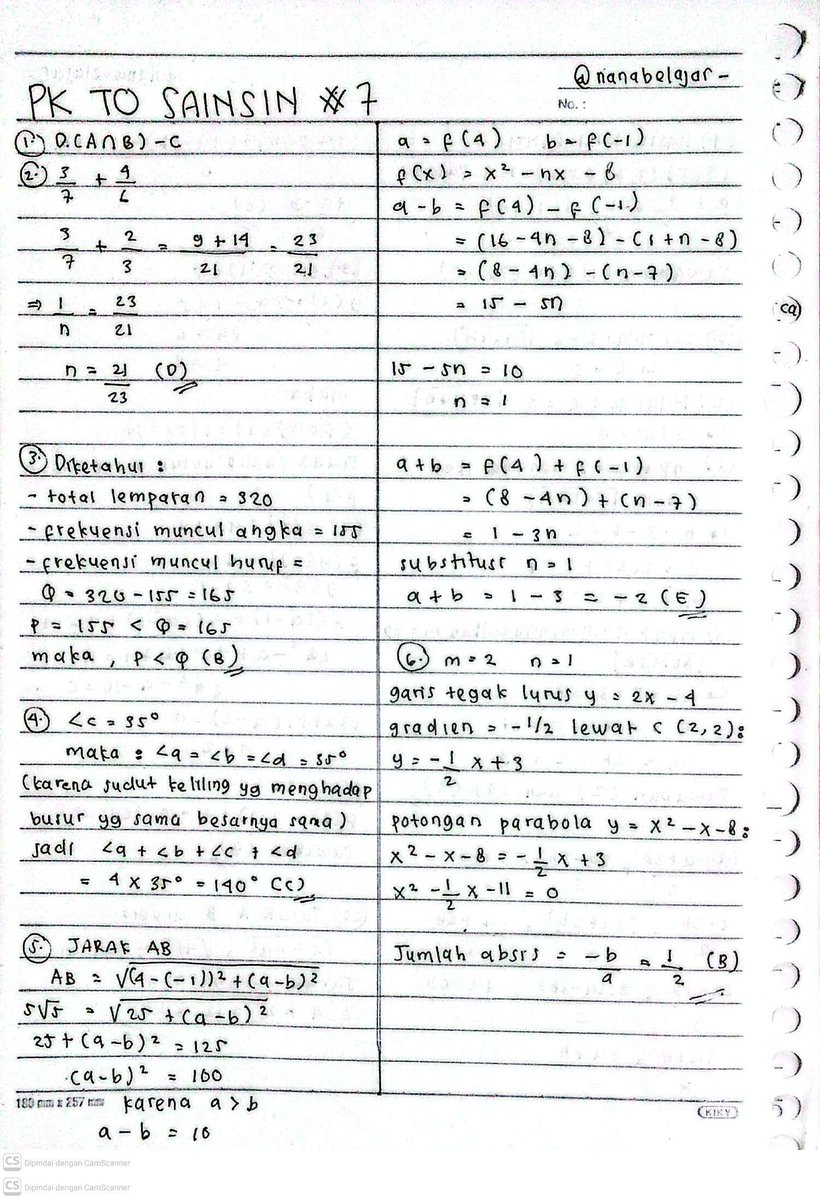 @nanabelajar-
PK TO SAINSIN #7
No. :
1. D. (A∩B) - C
2. 3/7 + 4/6
3/7 + 2/3 = 9 + 14/21 = 23/21
⇒ 1/n = 23/21
n = 21/23 (D)
3. Diketahui :
- total lemparan = 320
- frekuensi muncul angka = 155
- frekuensi muncul huruf =
Q = 320 - 155 = 165
P = 155 < Q = 165
maka, P < Q (B)
4. <c = 35°
maka : <a = <b = <d = 35°
(karena sudut keliling yg menghadap
busur yg sama besarnya sama)
jadi <a + <b + <c + <d
= 4 x 35° = 140° (C)
5. JARAK AB
AB = √(4-(-1))² + (a-b)²
5√5 = √25 + (a-b)²
25 + (a-b)² = 125
(a-b)² = 100
karena a > b
a - b = 10
a = f(4) b = f(-1)
f(x) = x² - nx - 8
a - b = f(4) - f(-1)
= (16 - 4n - 8) - (1 + n - 8)
= (8 - 4n) - (n - 7)
= 15 - 5n
15 - 5n = 10
n = 1
a + b = f(4) + f(-1)
= (8 - 4n) + (n - 7)
= 1 - 3n
substitusi n = 1
a + b = 1 - 3 = -2 (E)
6. m = 2 n = 1
garis tegak lurus y = 2x - 4
gradien = -1/2 lewat C (2,2):
y = -1/2 x + 3
potongan parabola y = x² - x - 8:
x² - x - 8 = -1/2 x + 3
x² - 1/2 x - 11 = 0
Jumlah absis = -b/a = 1/2 (B)
180 mm x 257 mm
KIKY
CS Dipindai dengan CamScanner
CS Dipindai dengan CamScanner